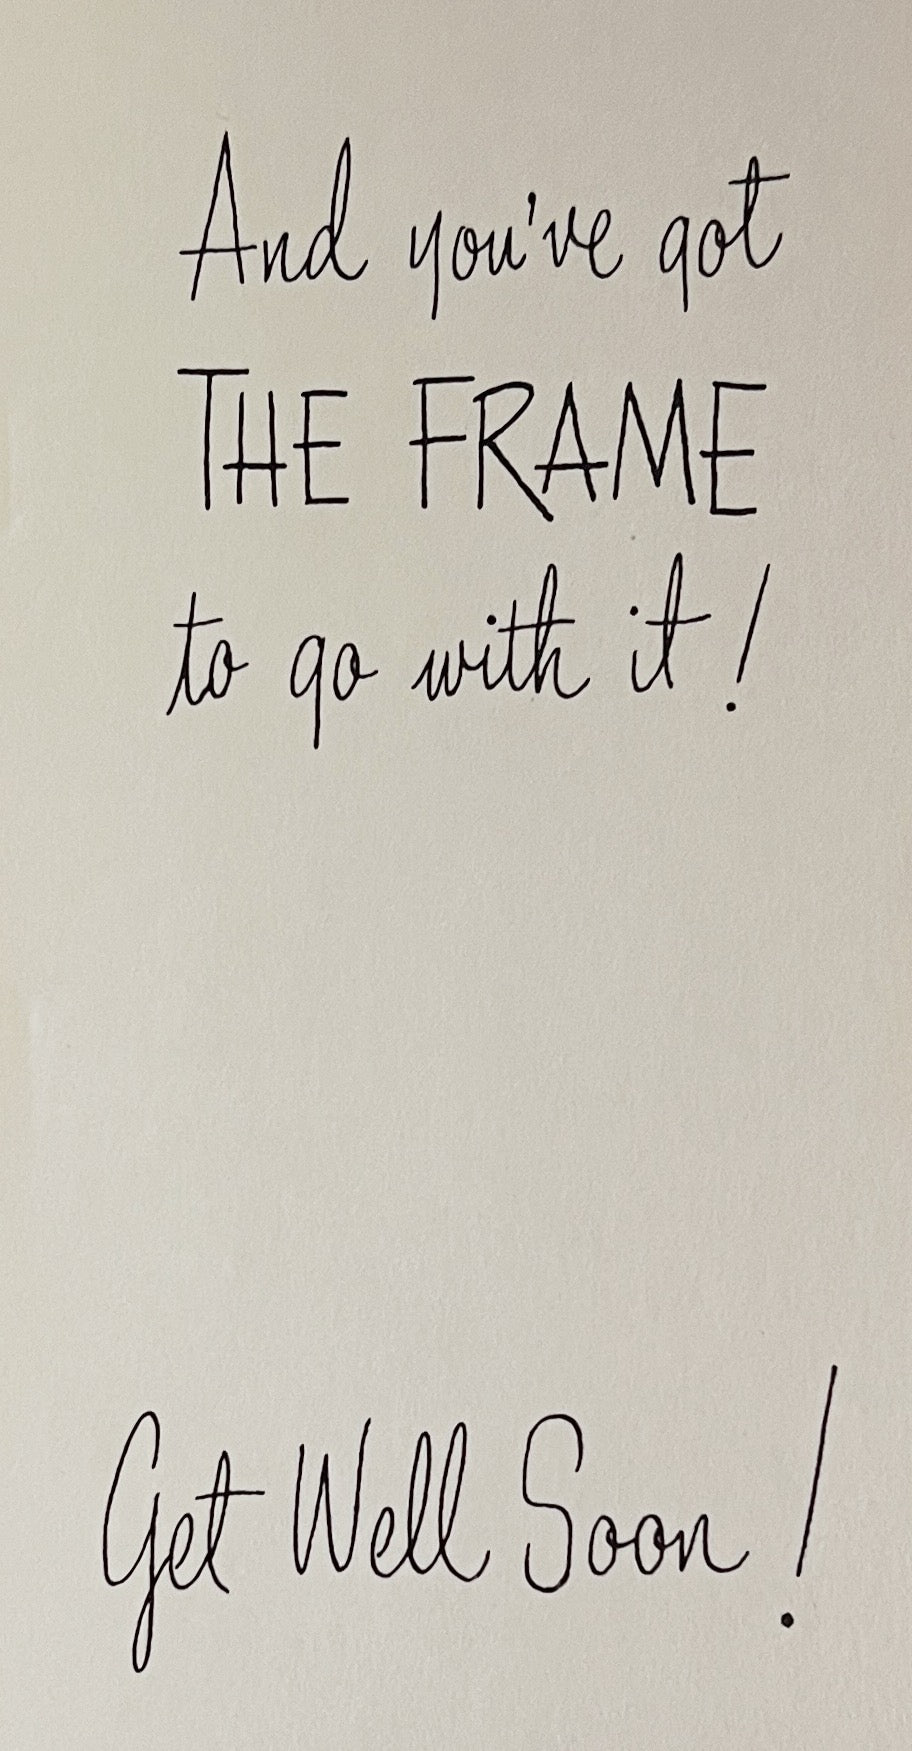 And you've got
THE FRAME
to go with it!
Get Well Soon!